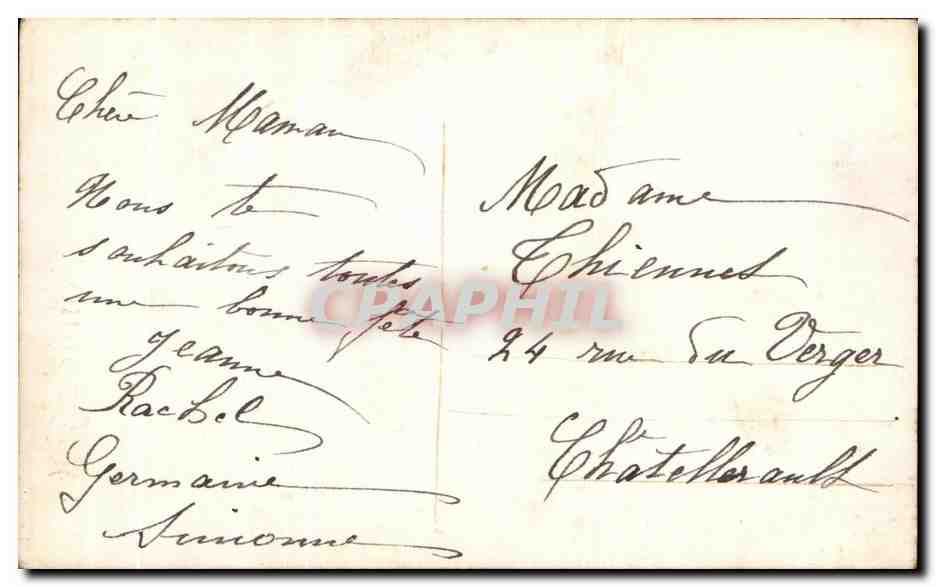 Chère Maman
Nous te
souhaitons toutes
une bonne fête
Jeanne
Rachel
Germaine
Simonne
Madame
Thiennet
24 rue du Verger
Châtellerault
CPAPHIL